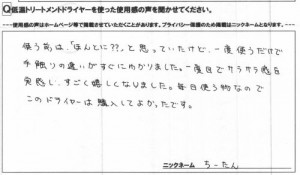 Q低温トリートメントドライヤーを使った使用感の声を聞かせてください。
使用感の声はホームページ等で掲載させていただくことがあります。プライバシー保護のため掲載はニックネームとなります。
使う前は、「ほんとに??」と思っていたけど、一度使うだけで
手触りの違いがすぐにわかりました。一度目でサラサラ感を
実感し、すごく嬉しくなりました。毎日使う物なので
このドライヤーは購入してよかったです。
ニックネーム ちーたん